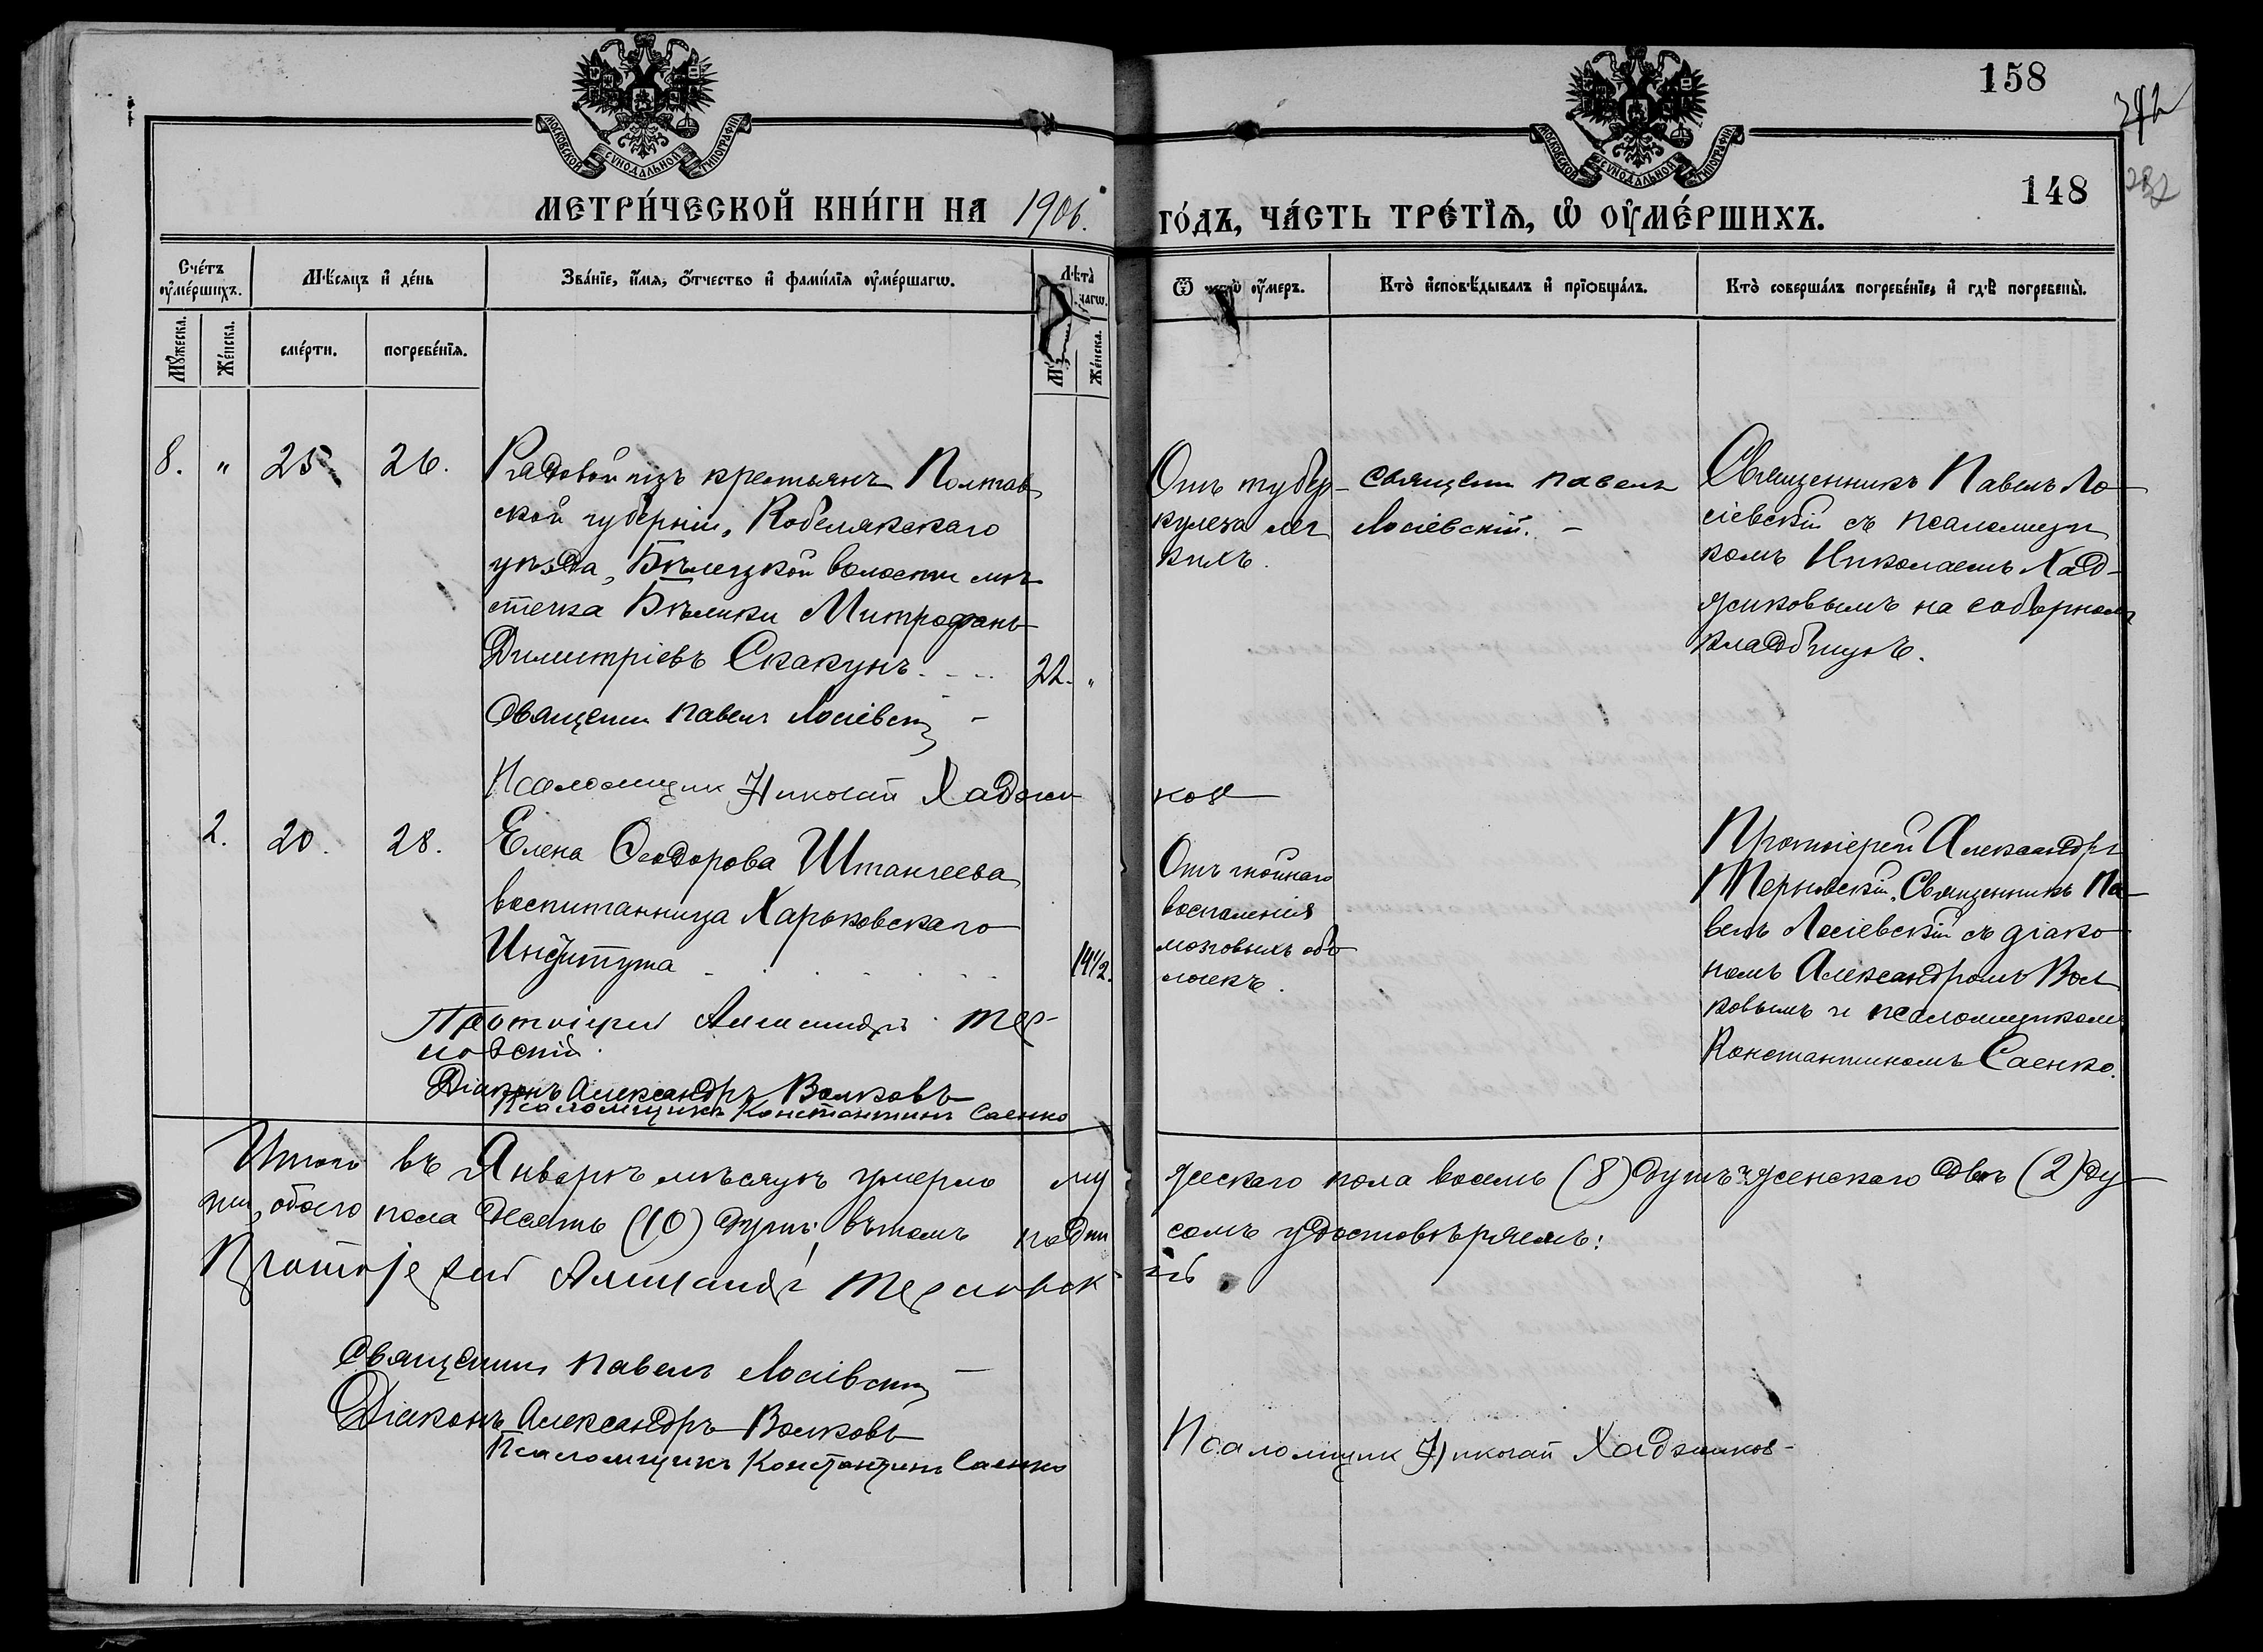 158
242
148
232
МОСКОВСКОЙ СѴНОДАЛЬНОЙ ТИПОГРАФІИ
МОСКОВСКОЙ СѴНОДАЛЬНОЙ ТИПОГРАФІИ
МЕТРИ́ЧЕСКОЙ КНИ́ГИ НА 1906.
ГО́ДЪ, ЧА́СТЬ ТРЕ́ТЇѦ, Ѡ҆ ОУ҆МЕ́РШИХЪ.
Сче́тъ оу҆ме́ршихъ.
Мꙋ́жеска.
Же́нска.
Мѣ́сяцъ и҆ де́нь
сме́рти.
погребе́нїѧ.
Зва́нїе, и҆́мѧ, ѻ҆́тчество и҆ фами́лїѧ оу҆ме́ршагѡ.
Лѣ́та
Же́нска.
Ѿ чегѡ̀ оу҆́меръ.
Кто̀ и҆сповѣ́дывалъ и҆ прїѡбща́лъ.
Кто̀ соверша́лъ погребе́нїе, и҆ гдѣ̀ погребены̀.
8. " 25 26.
Рядовой изъ крестьянъ Полтав
ской губерніи, Кобелякскаго
уѣзда, Бѣлецкой волости мѣ
стечка Бѣлики Митрофанъ
Димитріевъ Скакунъ. 22. "
Священникъ Павелъ Лосіевскій
Псаломщик Николай Хаджи
ков
Отъ тубер-
кулеза лег
кихъ.
Священникъ Павелъ
Лосіевскій.
Священникъ Павелъ Ло
сіевскій съ псаломщи
комъ Николаемъ Хад-
жиковымъ на соборномъ
кладбищѣ.
2. 20. 28.
Елена Ѳеодорова Штангеева
воспитанница Харьковскаго
Института 14½.
Протоіерей Александръ Тер-
новскій.
Діаконъ Александръ Волковъ
Псаломщикъ Константинъ Саенко
Отъ гнойнаго
воспаленія
мозговыхъ обо
лочекъ.
Протоіерей Александръ
Терновскій, Священникъ Па-
велъ Лосіевскій съ діако
номъ Александромъ Вол
ковымъ и псаломщикомъ
Константиномъ Саенко.
Итого въ Январѣ мѣсяцѣ умерло му
жескаго пола восемь (8) душъ женскаго двѣ (2) ду
ши, обоего пола десять (10) душъ; въ томъ подпи
сомъ удостовѣряемъ:
Протоіерей Александръ Терновск
ій
Священникъ Павелъ Лосіевскій
Діаконъ Александръ Волковъ
Псаломщикъ Константинъ Саенко
Псаломщик Николай Хаджиков